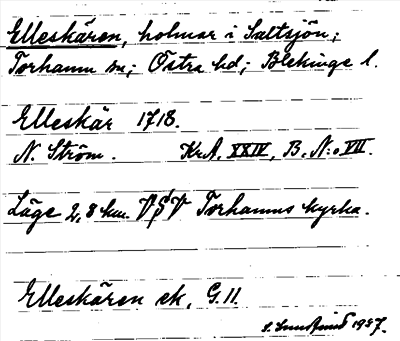 Elleskären, holmar i Saltsjön;
Torhamn sn; Östra hd; Blekinge l.
Elleskär 1718.
N. Ström. KrA, XXIV, B. N:o VII.
Läge 2,8 km. VSV Torhamns kyrka.
Elleskären ek, G.11.
1937.